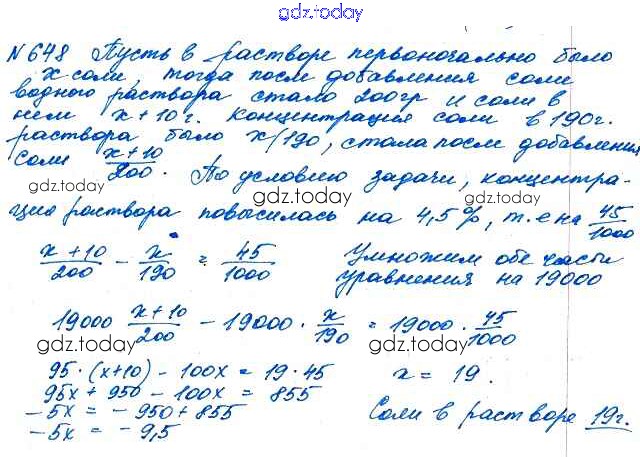 gdz.today
№648 Пусть в растворе первоначально было
x соли, тогда после добавления соли
водного раствора стало 200гр и соли в
нем x+10г. Концентрация соли в 190г.
раствора было x/190, стала после добавления
соли (x+10)/200. По условию задачи, концентра-
gdz.today gdz.today
ция раствора повысилась на 4,5%, т.е на 45/1000
(x+10)/200 - x/190 = 45/1000 Умножим обе части
уравнения на 19000
19000 (x+10)/200 - 19000 · x/190 = 19000 · 45/1000
gdz.today gdz.today
95·(x+10) - 100x = 19·45 x = 19.
95x + 950 - 100x = 855
-5x = -950+855
-5x = -9,5
Соли в растворе 19г.